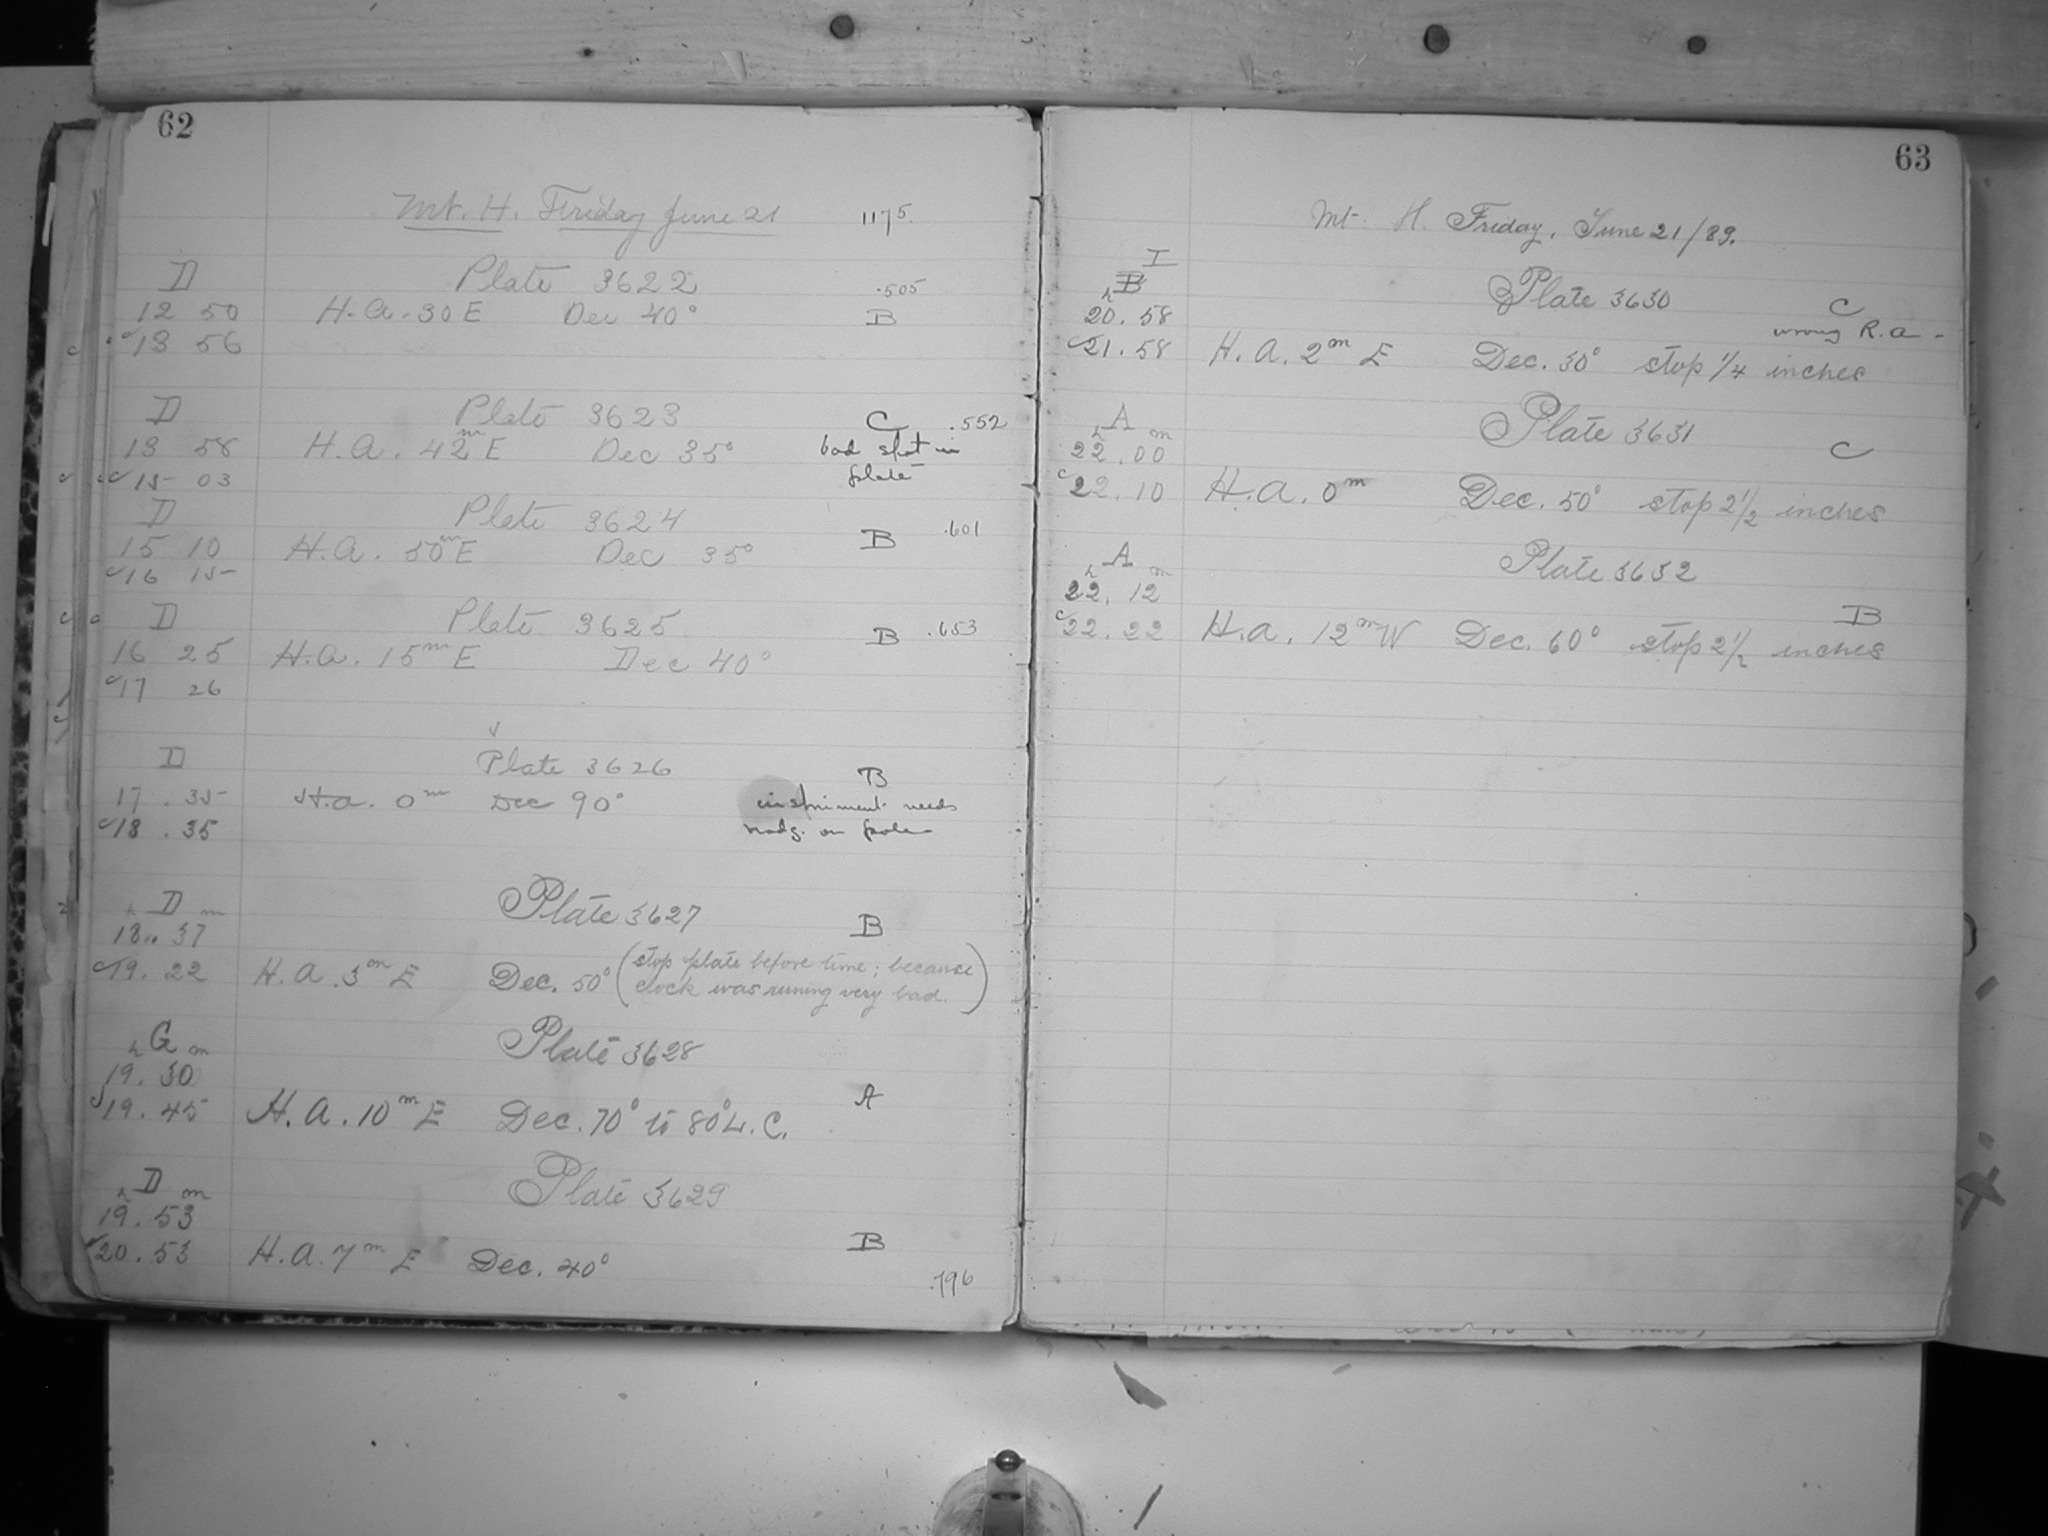 62
Mt. H. Friday June 21 1175.
D Plate 3622 .505
12 50 H.A. 30 E Dec 40° B
13 56
D Plate 3623 C .552
13 58 H.A. 42m E Dec 35° bad spot in
15 03 plate
D Plate 3624 .601
15 10 H.A. 50m E Dec 35° B
16 15
D Plate 3625 .653
16 25 H.A. 15m E Dec 40° B
17 26
D Plate 3626 B
17 . 35 H.a. 0m Dec 90° instriment needs
18 . 35 on pole
h D m Plate 3627 B
18 .. 37
19. 22 H.A. 3m E Dec. 50° (stop plate before time; because
clock was runing very bad.)
h G m Plate 3628
19. 30 A
19. 45 H.A. 10m E Dec. 70° to 80° L.C.
h D m Plate 3629
19. 53 B
20. 53 H.A. 7m E Dec. 40°
.796
63
Mt. H. Friday, June 21/89.
I
B Plate 3630 C
h
20. 58 wrong R.a -
21. 58 H.A. 2m E Dec. 30° stop 1/4 inches
h A m Plate 3631
22. 00 C
22. 10 H.A. 0m Dec. 50° stop 2 1/2 inches
h A m Plate 3632
22. 12 B
22. 22 H.a. 12m W Dec. 60° stop 2 1/2 inches